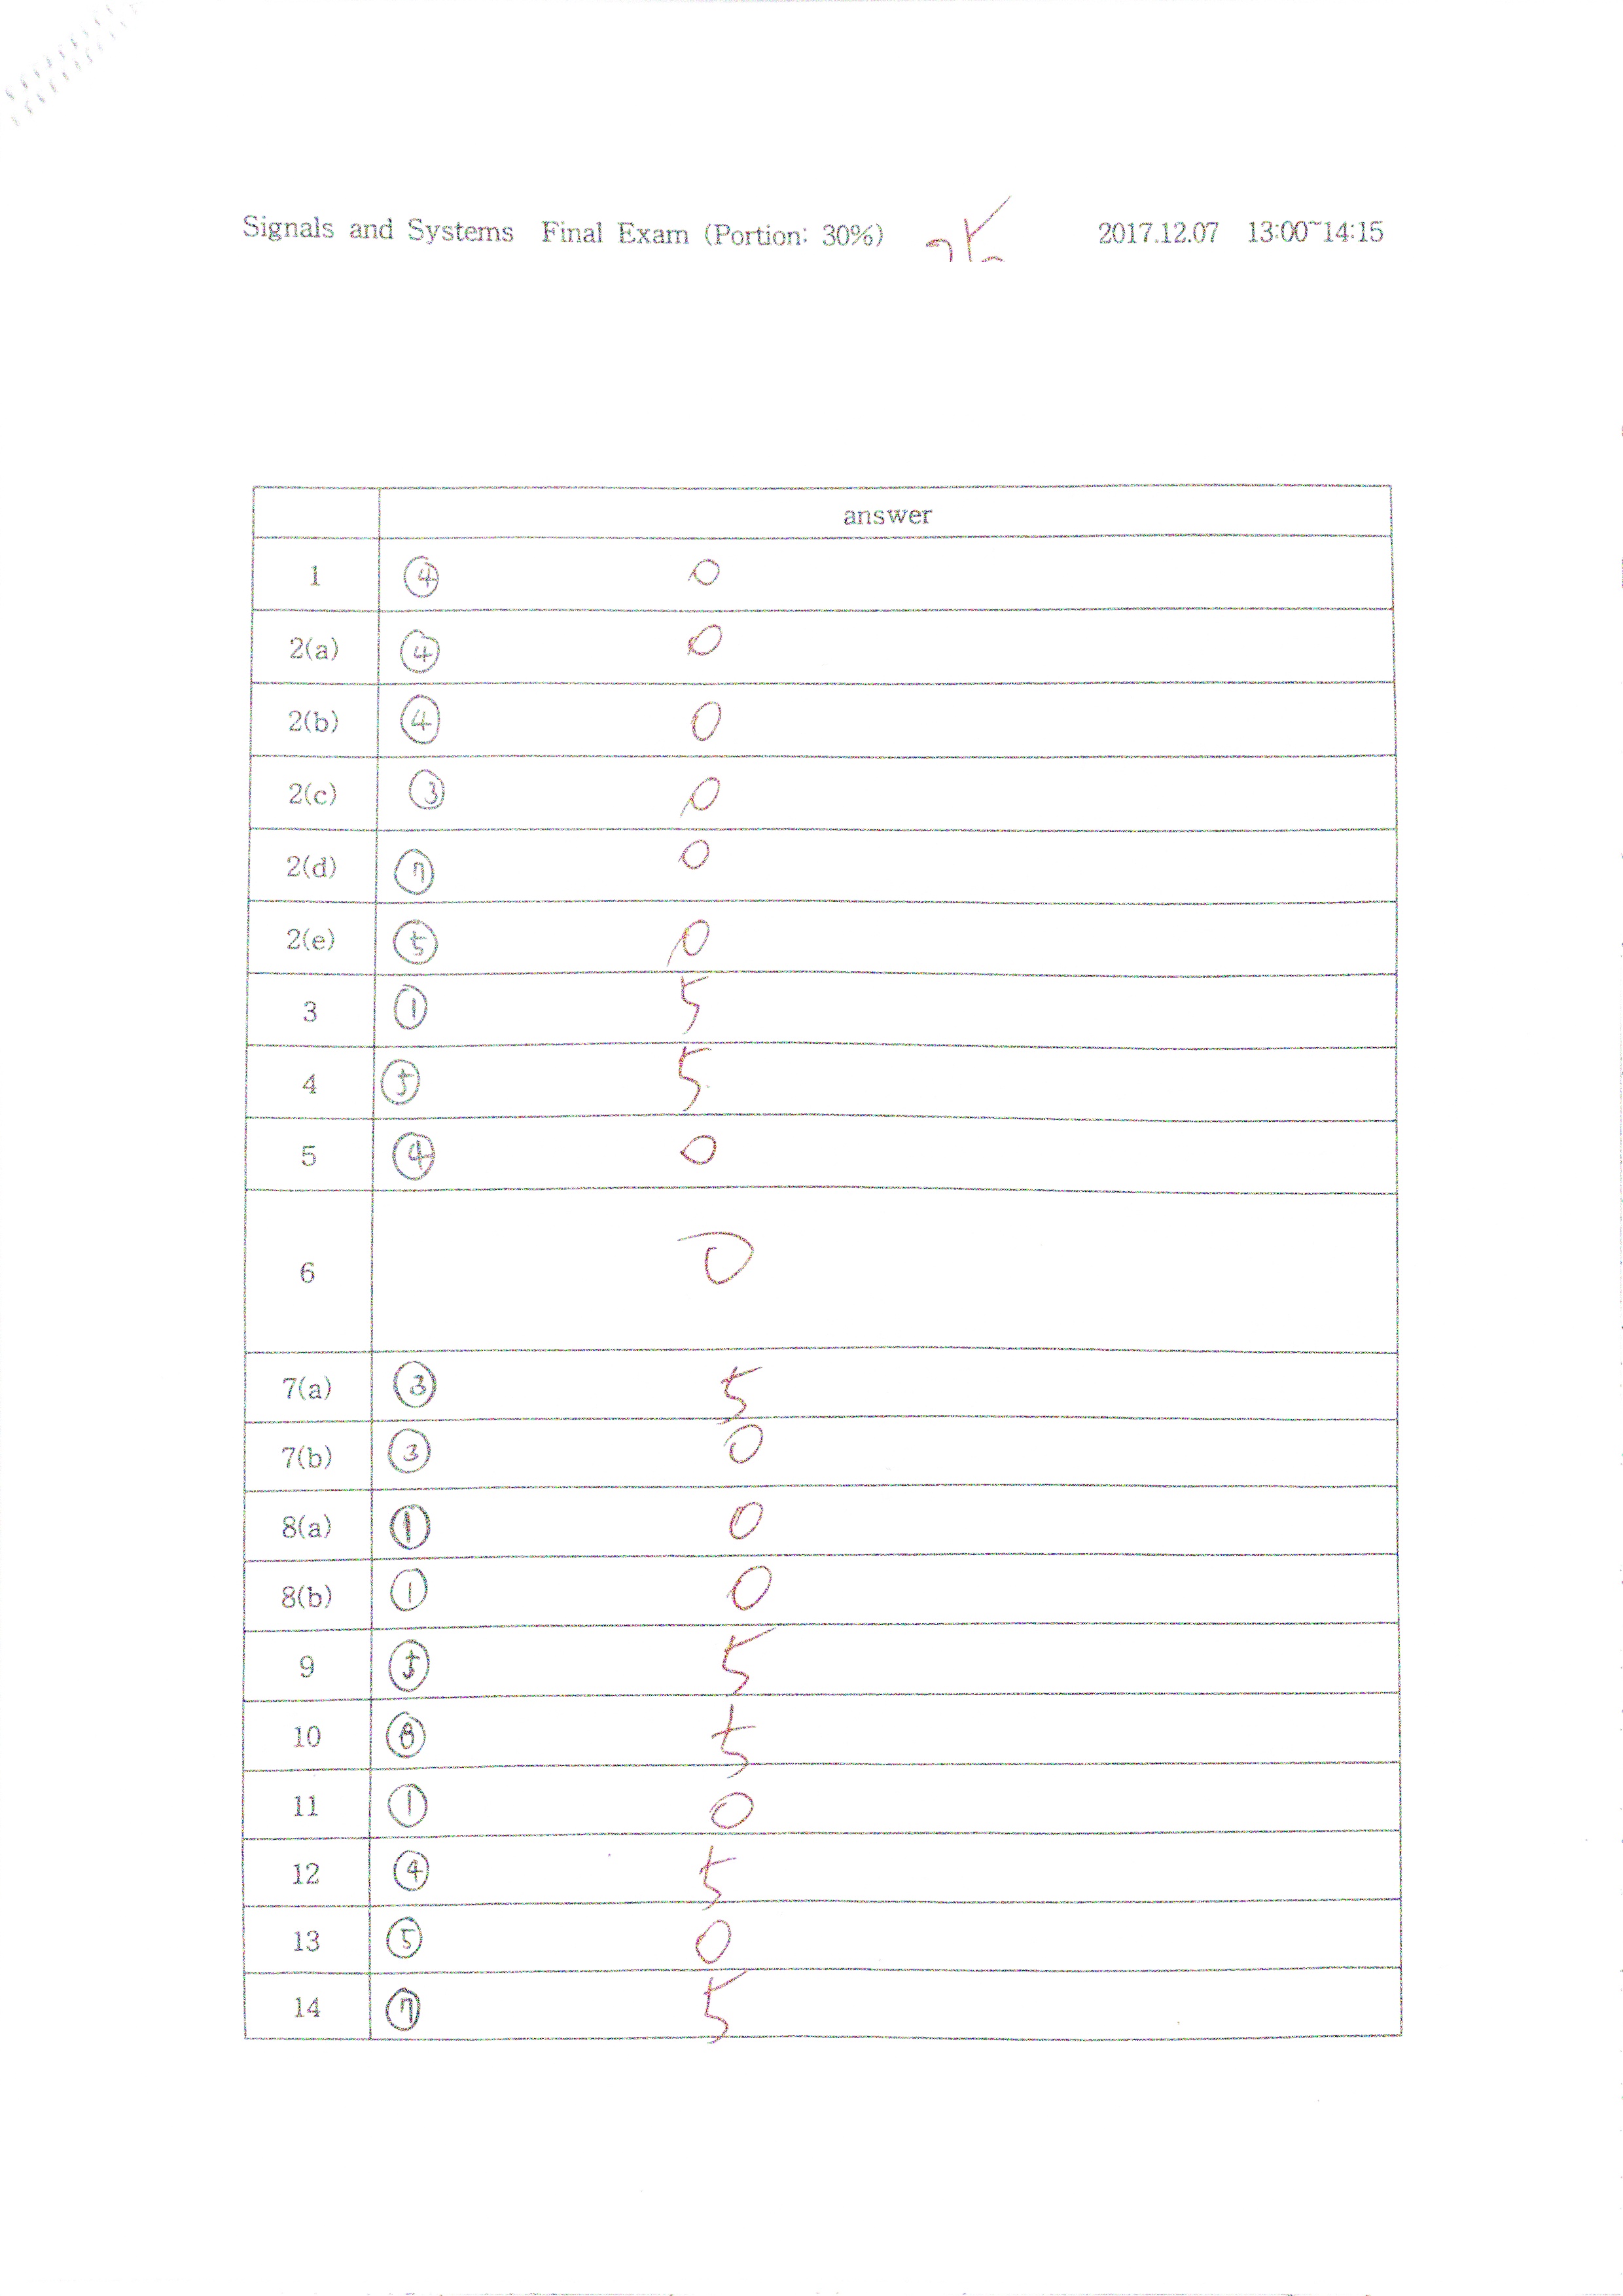 Signals and Systems Final Exam (Portion: 30%) 2017.12.07 13:00~14:15
answer
1 ④ 0
2(a) ④ 0
2(b) ④ 0
2(c) ③ 0
2(d) ⑦ 0
2(e) ⑤ 0
3 ① 5
4 ⑤ 5
5 ④ 0
6 0
7(a) ③ 5
7(b) ③ 0
8(a) ① 0
8(b) ① 0
9 ⑤ 5
10 ⑧ 5
11 ① 0
12 ④ 5
13 ⑤ 0
14 ⑦ 5